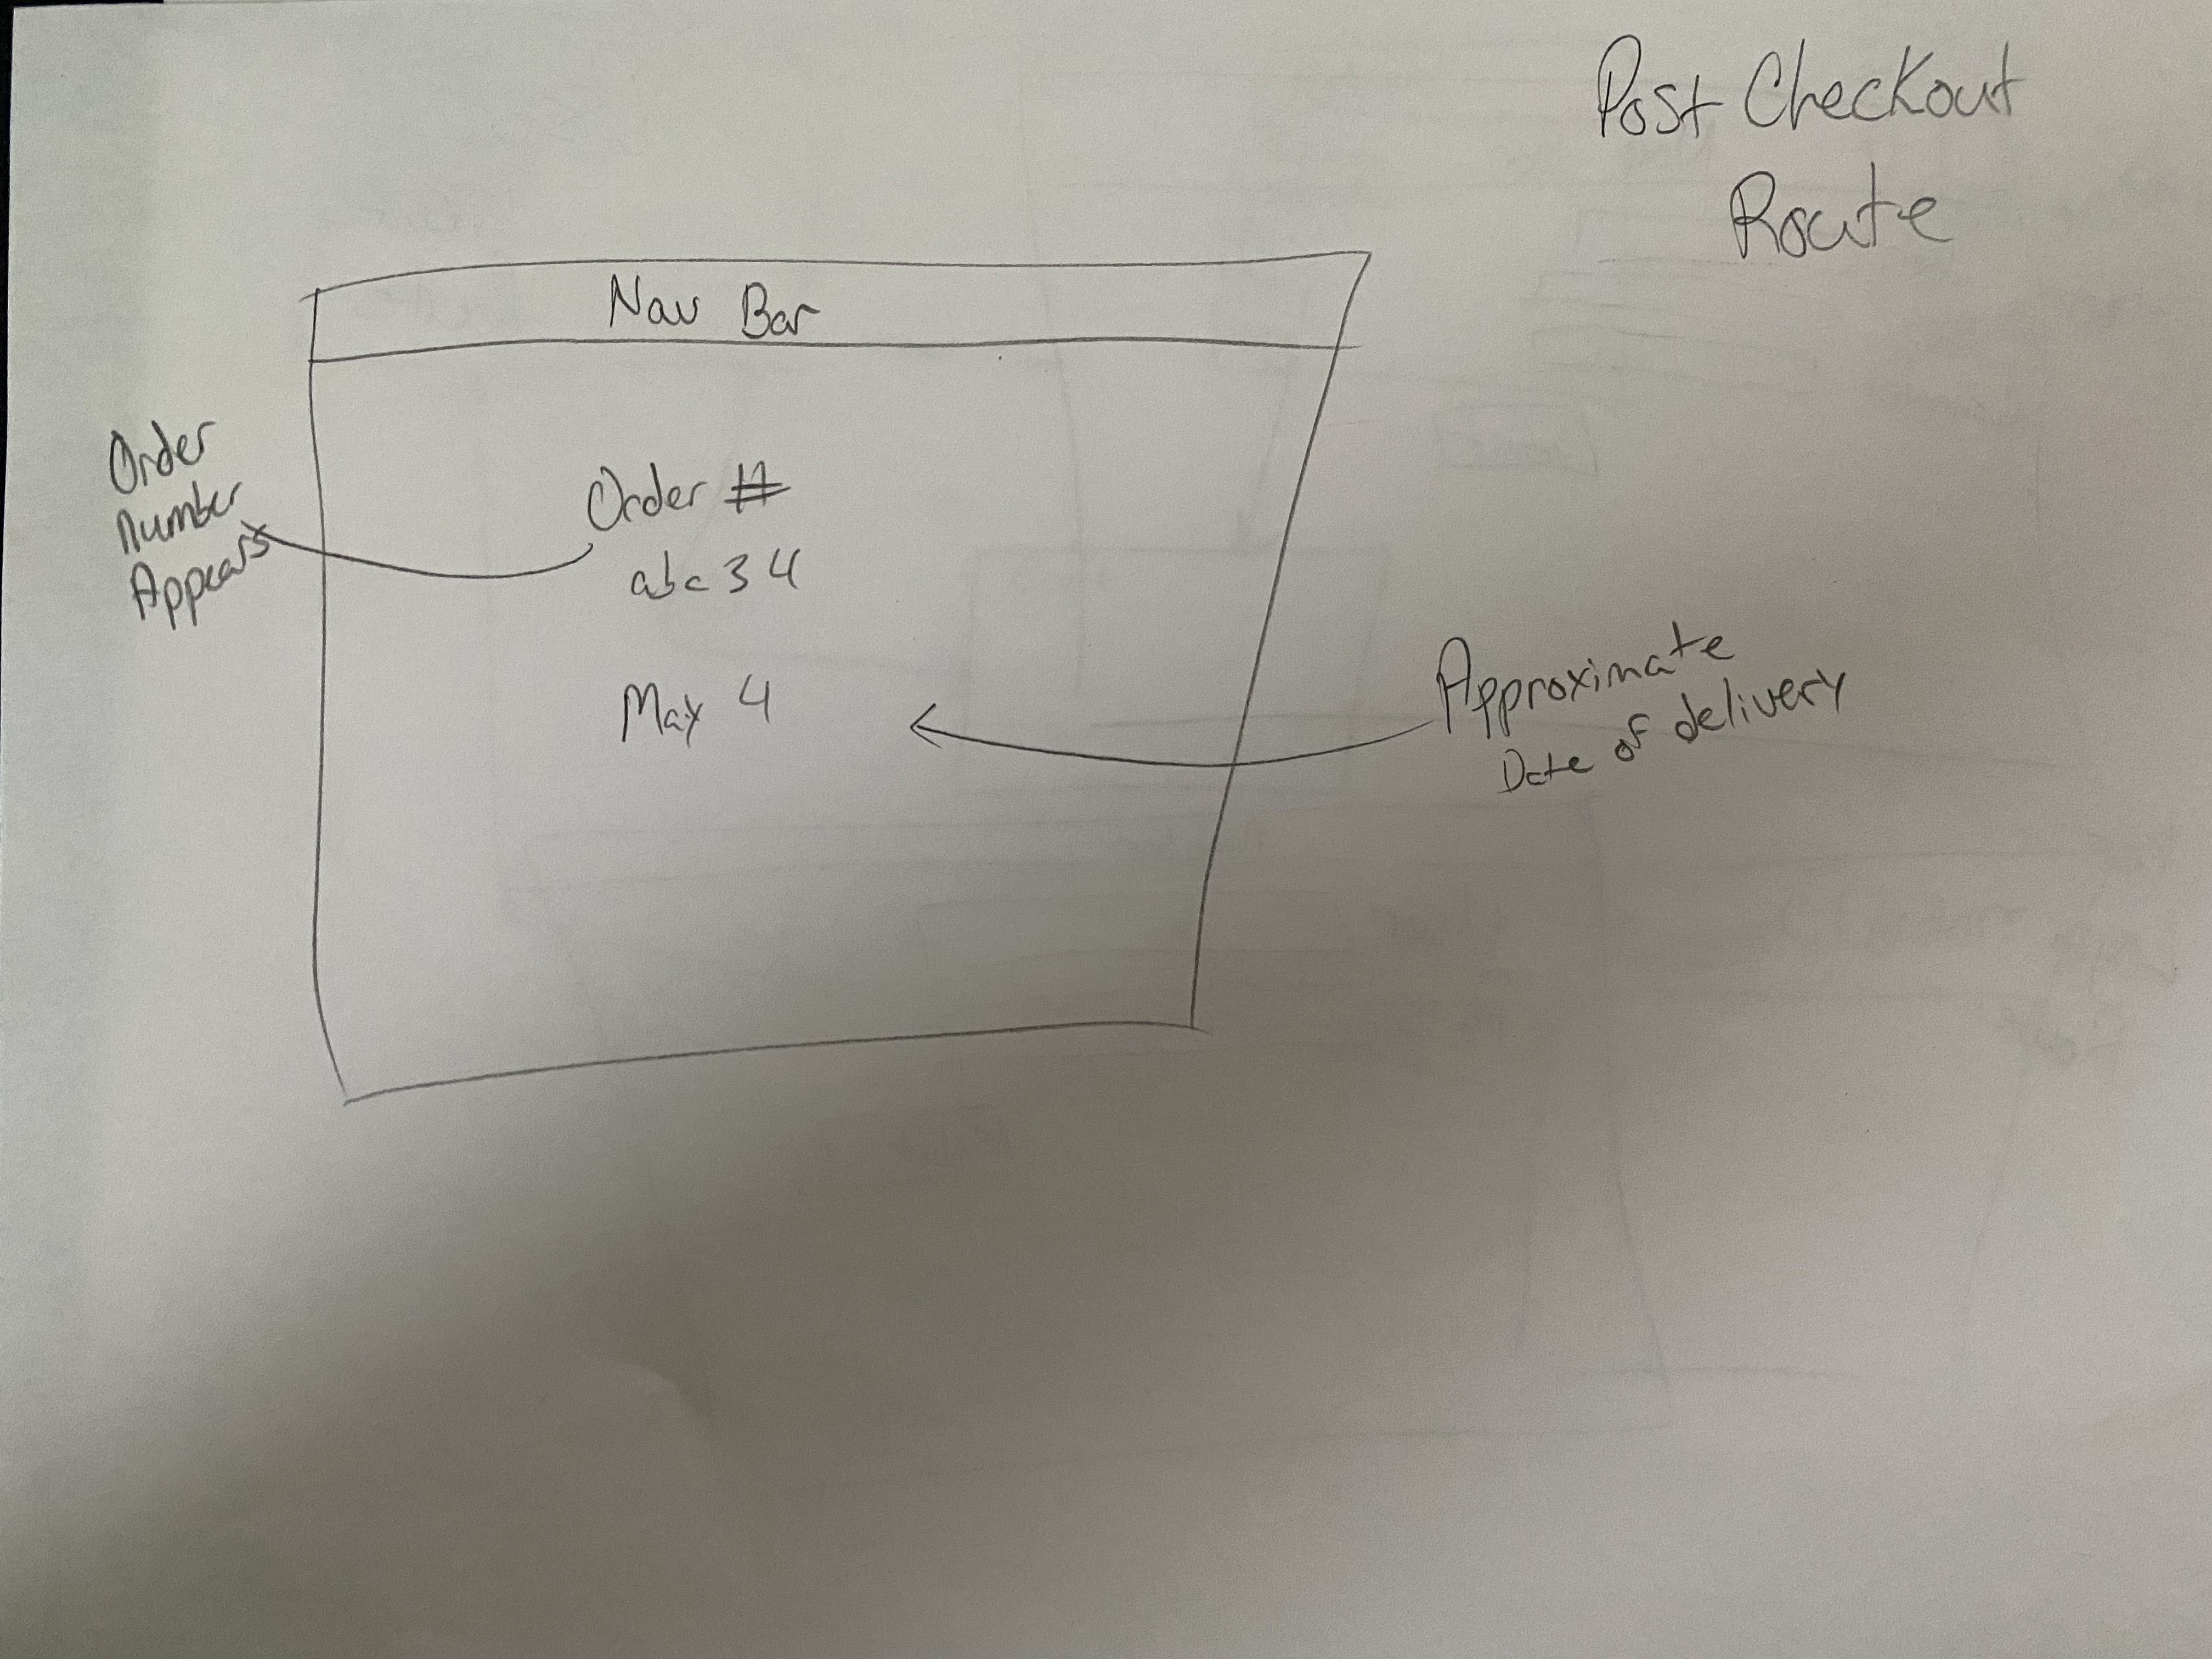 Post Checkout
Route
Nav Bar
Order
number
Appears
Order #
abc34
May 4
Approximate
Date of delivery